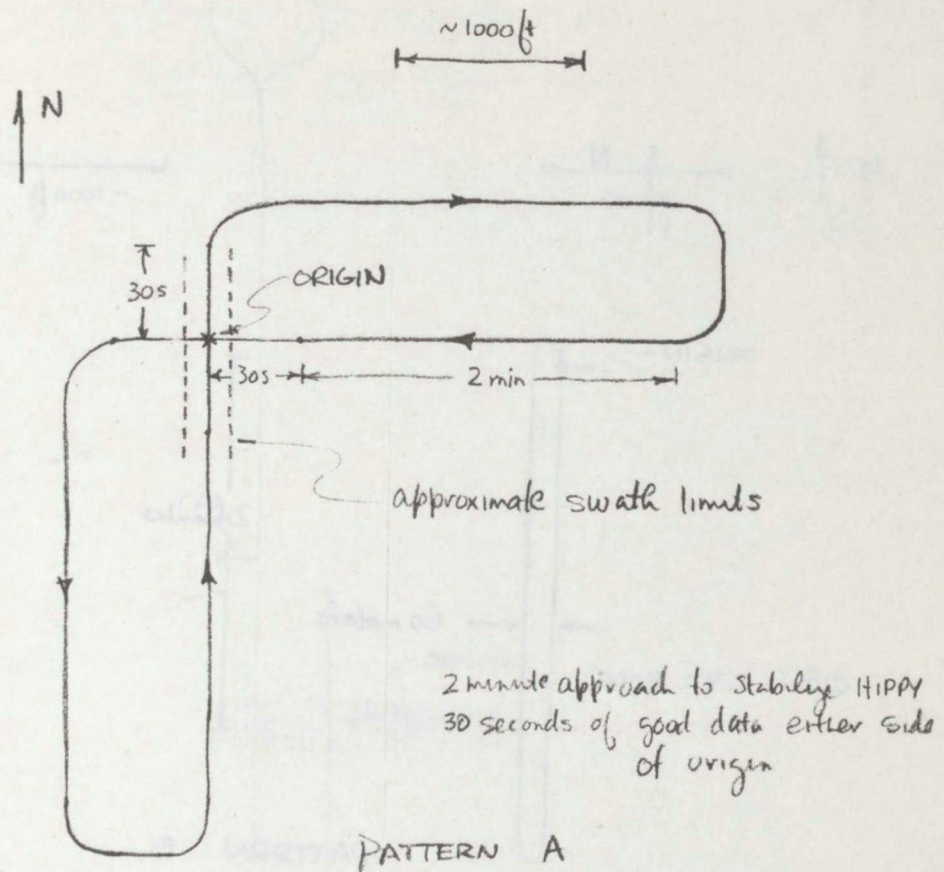 ~1000ft
N
30s
ORIGIN
30s
2 min
approximate swath limits
2 minute approach to stabilize HIPPY
30 seconds of good data either side
of origin
PATTERN A